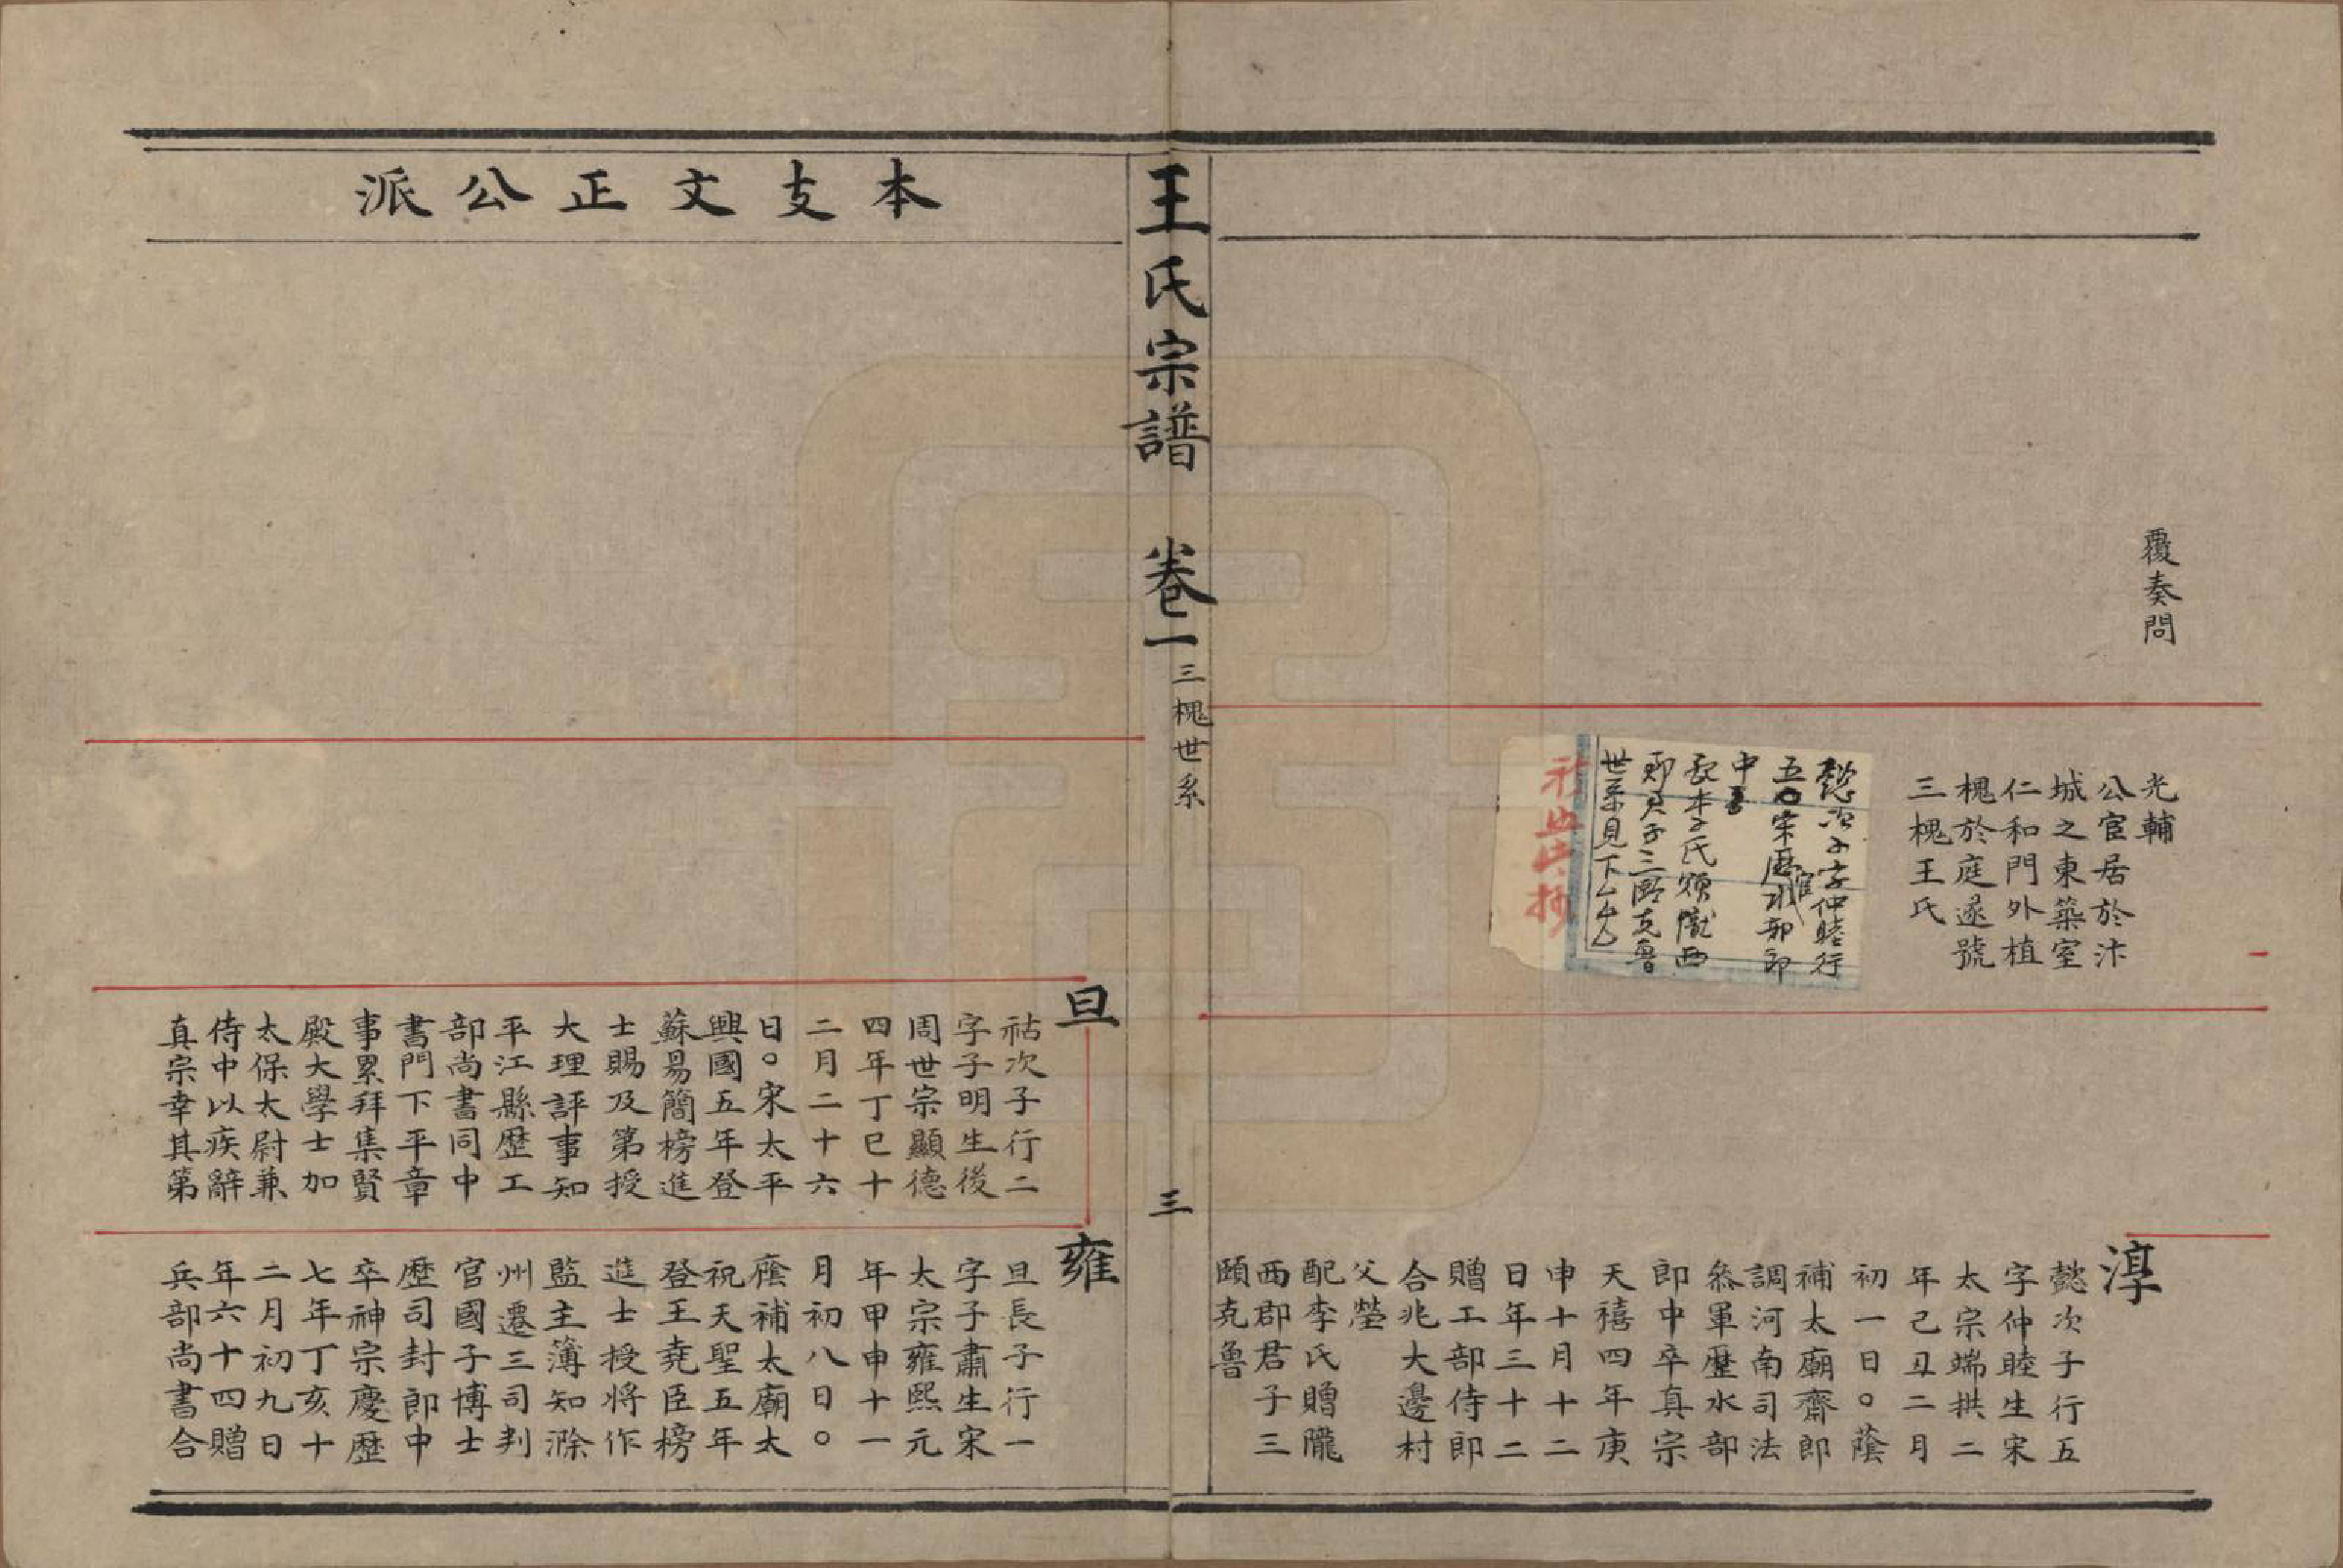 覆奏問
光輔
公官居於汴
城之東築室
仁和門外植
槐於庭遂號
三槐王氏
懿次子字仲睦行
五〇宋歷官水部郎
中
配李氏贈隴西
郡君子三頤克魯
世系見下
淳
懿次子行五
字仲睦生宋
太宗端拱二
年己丑二月
初一日。蔭
補太廟齋郎
調河南司法
叅軍歷水部
郎中卒真宗
天禧四年庚
申十月十二
日年三十二
贈工部侍郎
合兆大邊村
父塋
配李氏贈隴
西郡君子三
頤克魯
王氏宗譜 卷一 三槐世系 三
本支文正公派
旦
祜次子行二
字子明生後
周世宗顯德
四年丁巳十
二月二十六
日。宋太平
興國五年登
蘇易簡榜進
士賜及第授
大理評事知
平江縣歷工
部尚書同中
書門下平章
事累拜集賢
殿大學士加
太保太尉兼
侍中以疾辭
真宗幸其第
雍
旦長子行一
字子肅生宋
太宗雍熙元
年甲申十一
月初八日。
廕補太廟太
祝天聖五年
登王堯臣榜
進士授將作
監主簿知滁
州遷三司判
官國子博士
歷司封郎中
卒神宗慶歷
七年丁亥十
二月初九日
年六十四贈
兵部尚書合